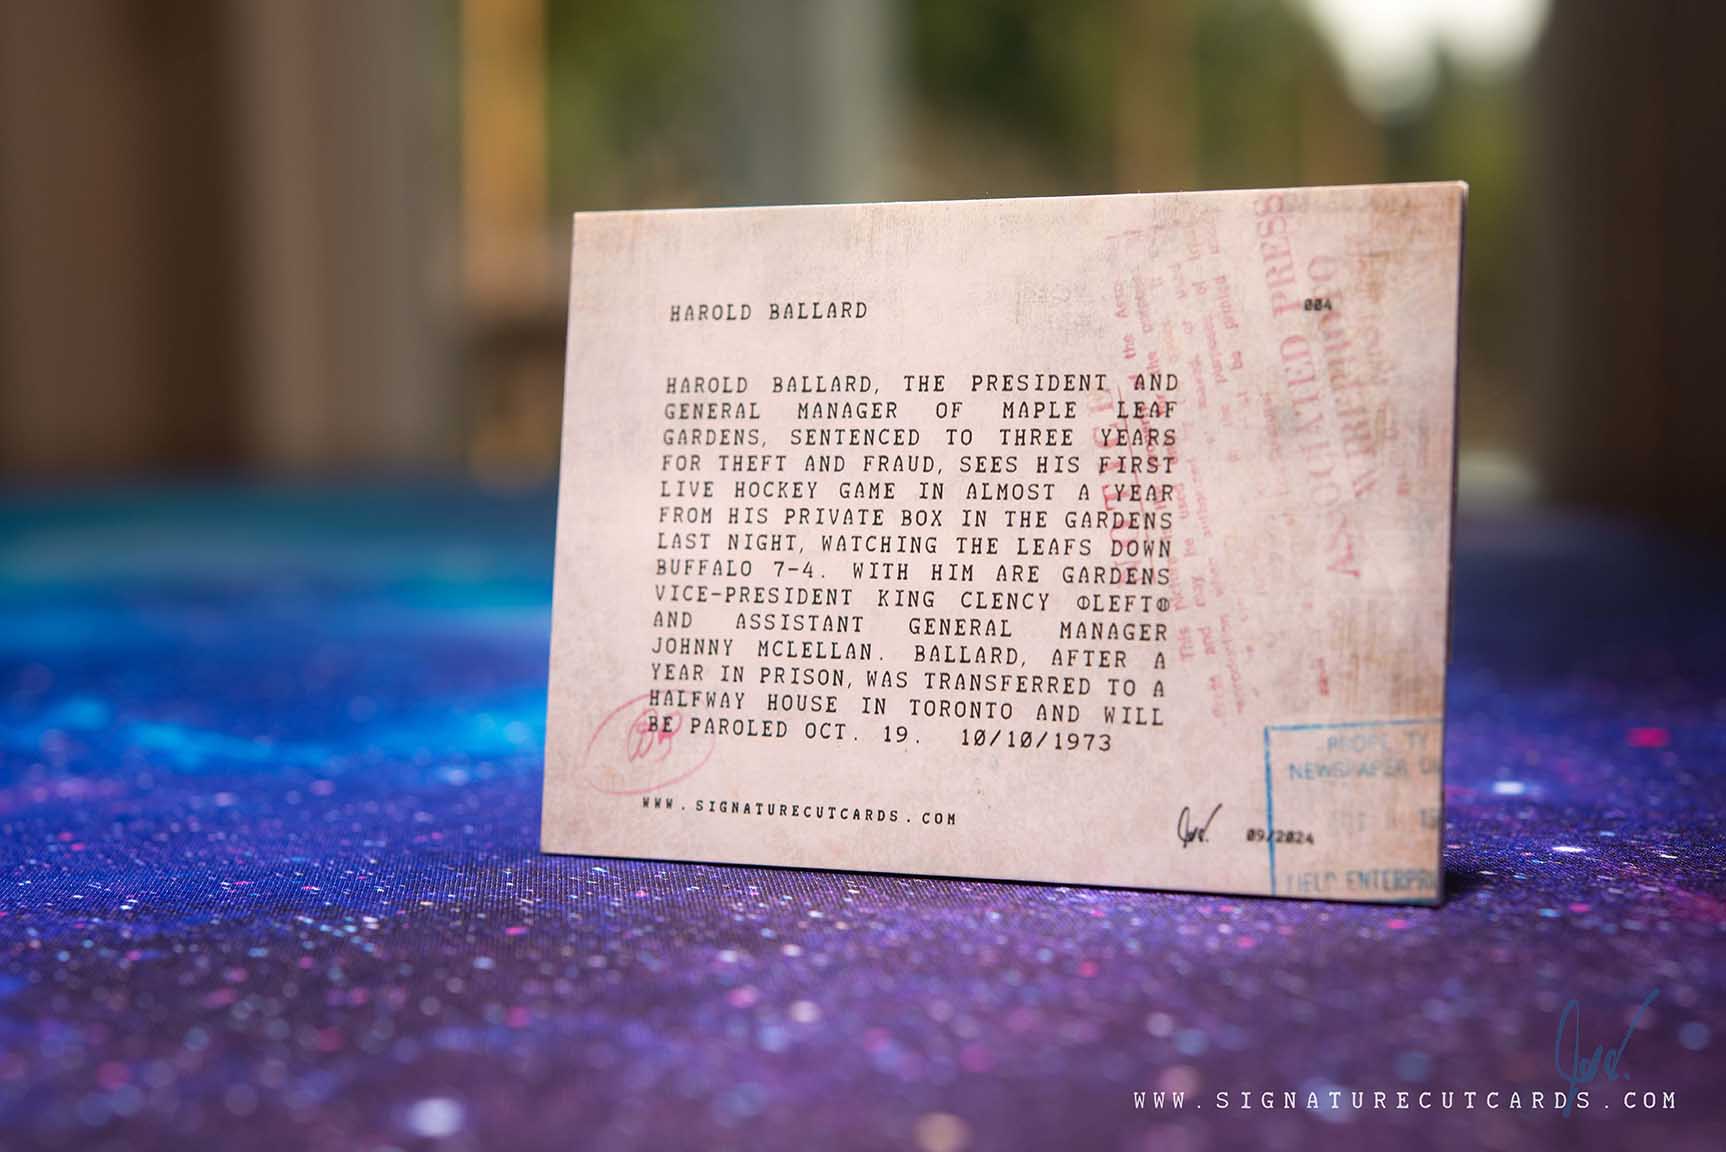 HAROLD BALLARD
004
HAROLD BALLARD, THE PRESIDENT AND
GENERAL MANAGER OF MAPLE LEAF
GARDENS, SENTENCED TO THREE YEARS
FOR THEFT AND FRAUD, SEES HIS FIRST
LIVE HOCKEY GAME IN ALMOST A YEAR
FROM HIS PRIVATE BOX IN THE GARDENS
LAST NIGHT, WATCHING THE LEAFS DOWN
BUFFALO 7-4. WITH HIM ARE GARDENS
VICE-PRESIDENT KING CLENCY ⦶LEFT⦶
AND ASSISTANT GENERAL MANAGER
JOHNNY MCLELLAN. BALLARD, AFTER A
YEAR IN PRISON, WAS TRANSFERRED TO A
HALFWAY HOUSE IN TORONTO AND WILL
BE PAROLED OCT. 19. 10/10/1973
WWW.SIGNATURECUTCARDS.COM
09/2024
ASSOCIATED PRESS
WIREPHOTO
NEWSPAPER
FIELD ENTERPRI
WWW.SIGNATURECUTCARDS.COM